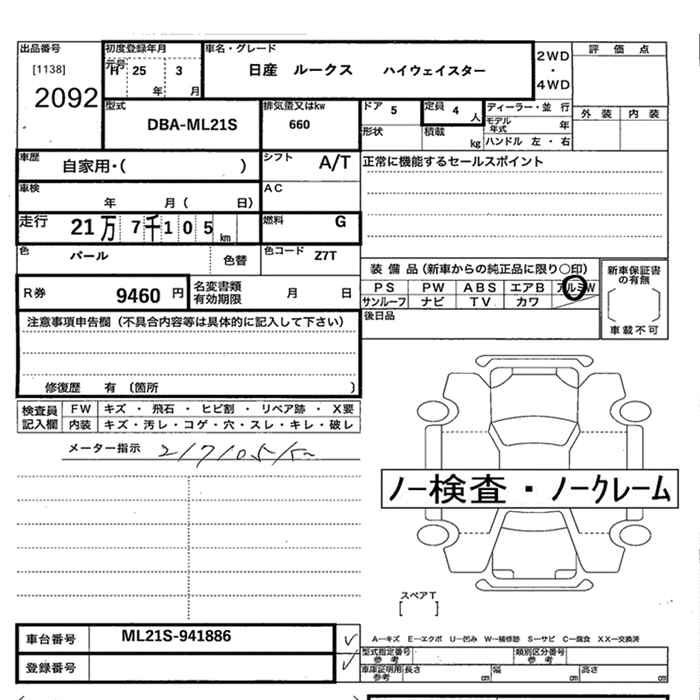 出品番号 初度登録年月 車名・グレード 2WD 評価点
[1138] 元号 H 25 3 日産 ルークス ハイウェイスター ・
2092 年 月 4WD
型式 排気量又はkw ドア 5 定員 4 人 ディーラー・並 行 外装 内装
DBA-ML21S 660 モデル年式 年
形状 積載 kg ハンドル 左・右
車歴 自家用・( ) シフト A/T 正常に機能するセールスポイント
車検 年 月( 日) AC
走行 21万 7千105 km 燃料 G
色 パール 色替 色コード Z7T
装備品(新車からの純正品に限り〇印) 新車保証書の有無
R券 9460 円 名変書類有効期限 月 日 PS PW ABS エアB アルミW
サンルーフ ナビ TV カワ 車載不可
注意事項申告欄(不具合内容等は具体的に記入して下さい) 後日品
修復歴 有 (箇所 )
検査員記入欄 FW キズ ・ 飛石 ・ ヒビ割 ・ リペア跡 ・ X要
内装 キズ・汚レ・コゲ・穴・スレ・キレ・破レ
メーター指示 217105/
ノー検査・ノークレーム
スペアT
[ ]
車台番号 ML21S-941886 A…キズ E…エクボ U…凹み W…補修跡 S…サビ C…腐食 XX…交換済
型式指定番号 参考 類別区分番号 参考
登録番号 車庫証明用 参考 長さ cm 幅 cm 高さ cm